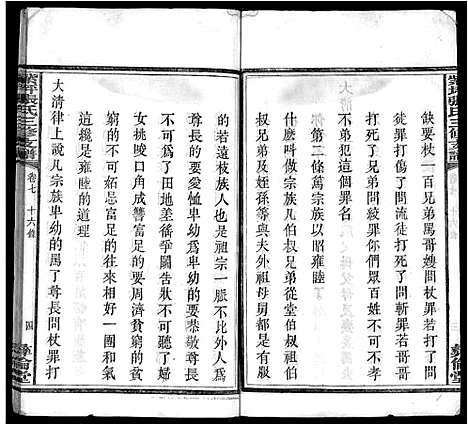 缺要杖一百兄弟罵哥嫂問杖罪若打了要問
徒罪打傷了問流罪打死了問斬罪若哥哥
打死了兄弟問絞罪你們眾百姓不可不
知有這個罪名
第二條篤宗族以昭雍睦
什麼叫做宗族凡伯叔兄弟從堂伯叔
兄弟姑嫂姊妹等與夫外
的若有遠枝族人也是祖宗一脈不比外人爲
尊長的要愛恤卑幼爲卑幼的要恭敬尊長
不可爲了田地差徭爭鬬告狀不可聽了婦
女挑唆口角成讐富足的要周濟貧窮的貧
窮的不可妬忌富足的往來相好一團和氣
這纔是雍睦的道理
大清律上說凡宗族卑幼的罵了尊長問杖罪打
紫坪張氏三修支譜
卷七 十六條
四
彝倫堂